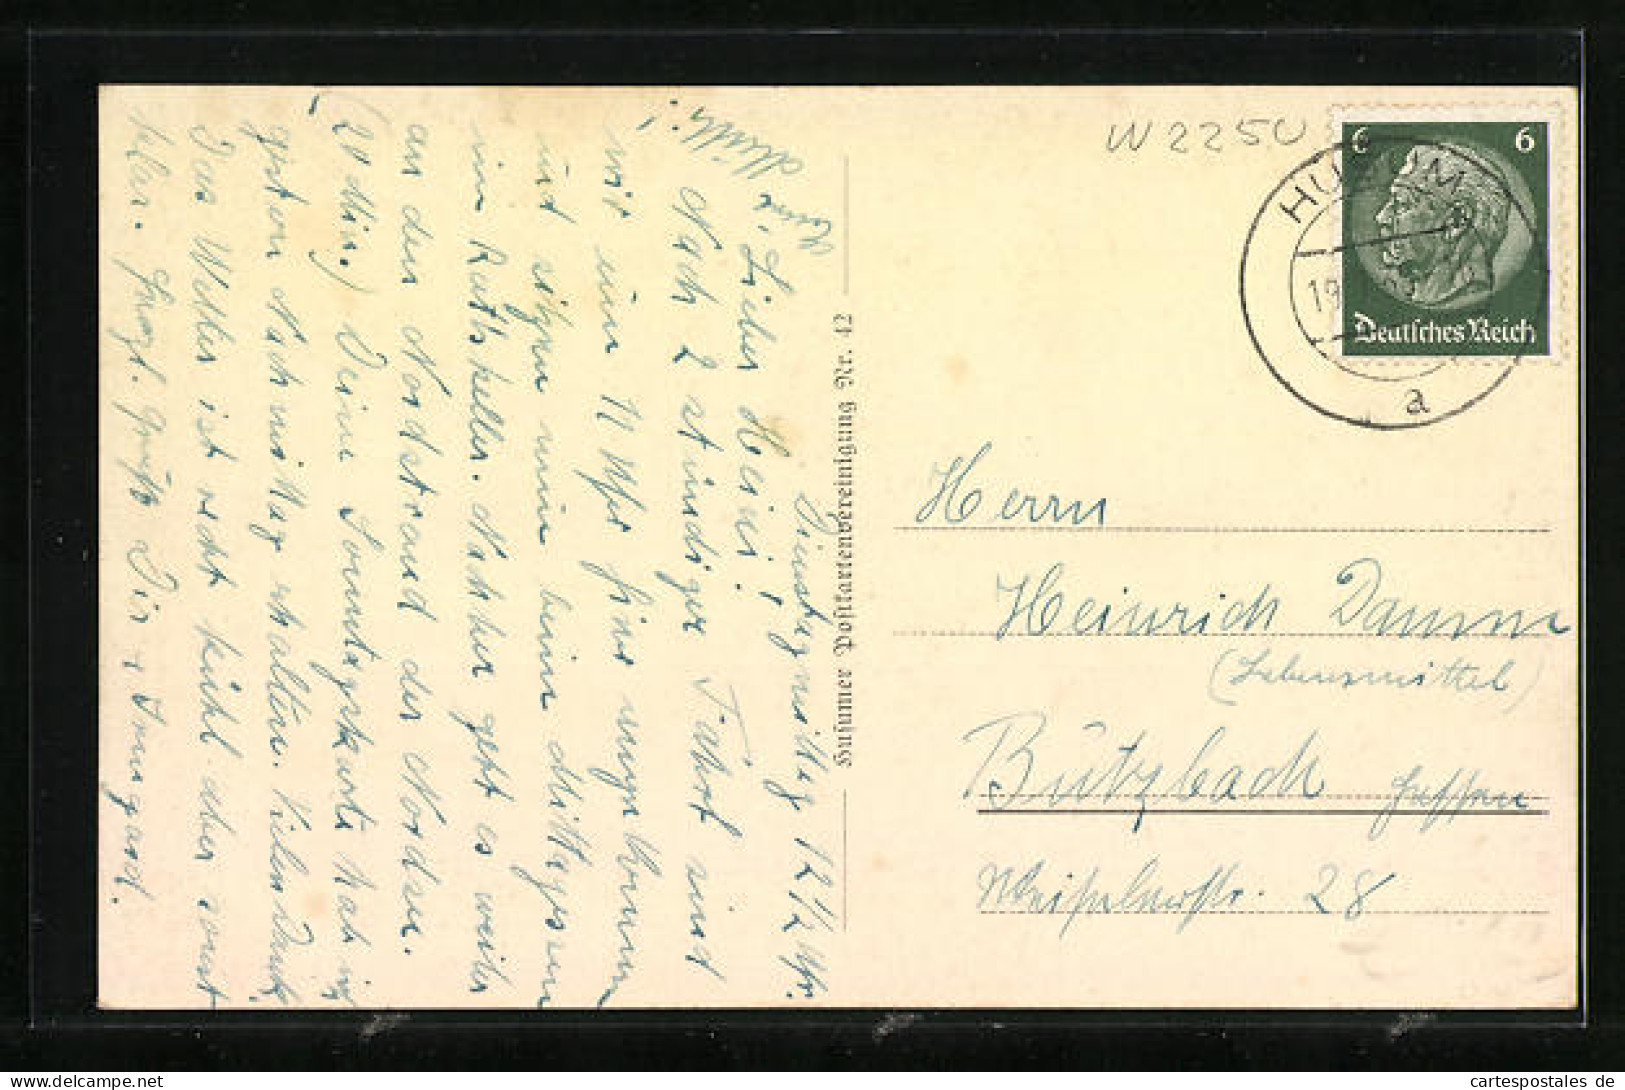 W 2250
6 6
HUSUM
19
a
Deutsches Reich
Dienstagmittag 12 1/2 Uhr.
Lieber Heini!
Nach 2 stündiger Fahrt sind
wir um 11 Uhr hier angekommen
und sitzen nun beim Mittagessen
im Ratskeller. Nachher geht es weiter
an den Nordstrand der Nordsee.
(20 Min.) Deine Sonntagskarte hab ich
gestern Nachmittag erhalten. Vielen Dank!
Das Wetter ist recht kühl aber sonst
klar. Herzl. Grüße Dir, Irmgard.
Husumer Postkartenvereinigung Nr. 42
Herrn
Heinrich Damm
(Lebensmittel)
Butzbach Hessen
Weiselerstr. 28
cartespostales de